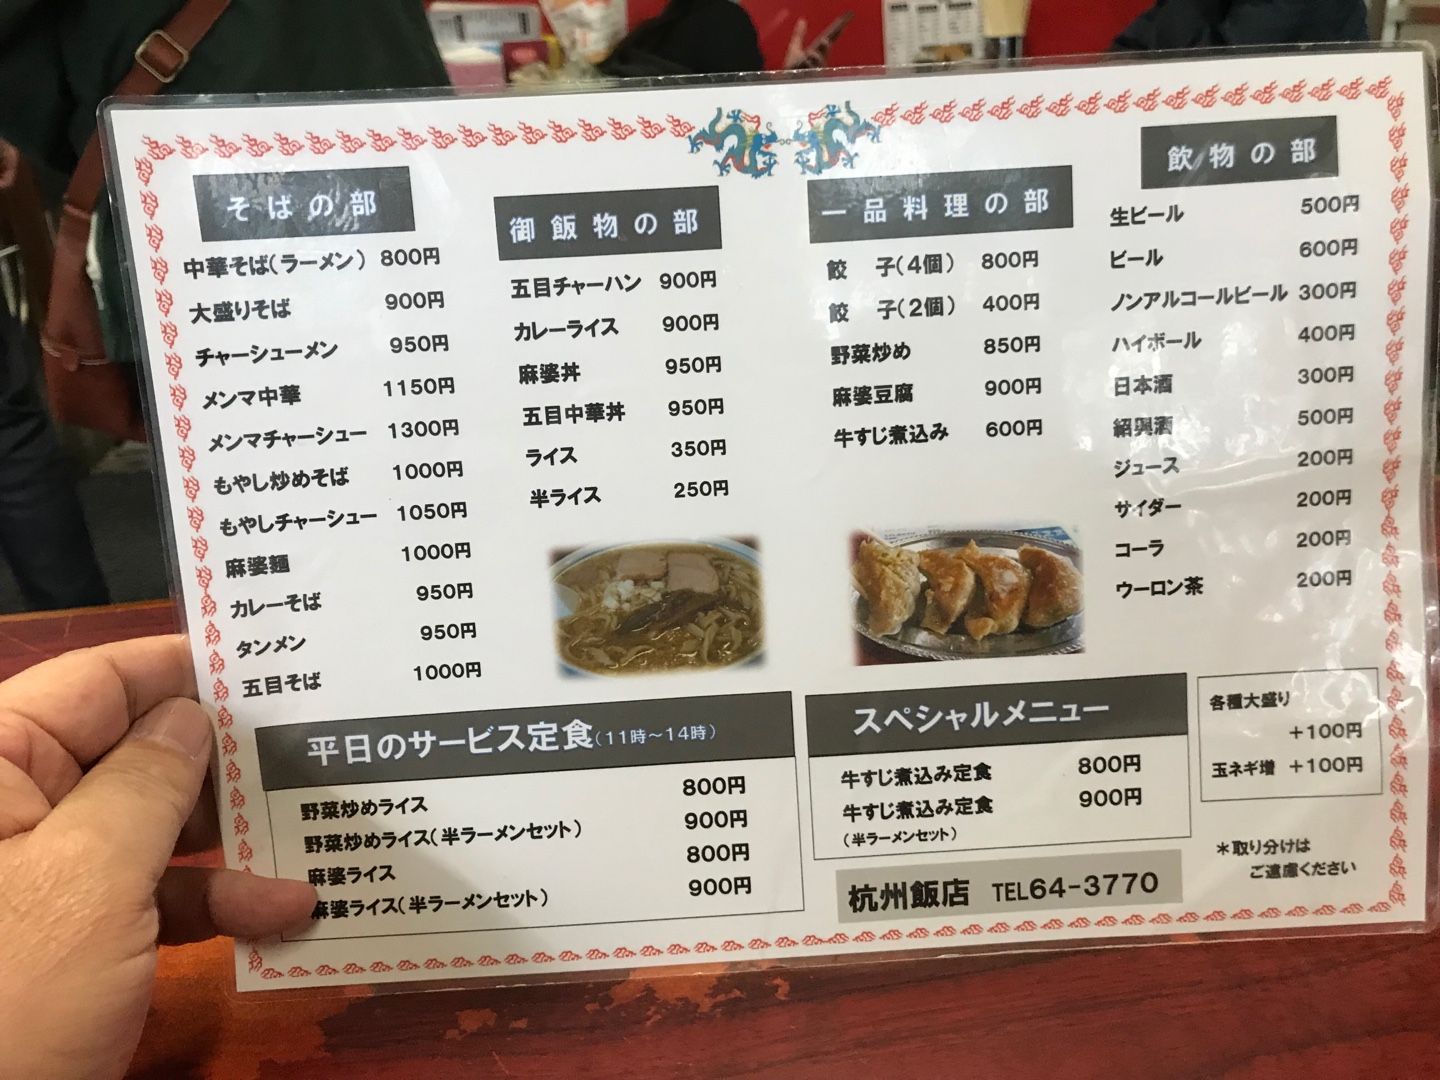 そばの部
中華そば(ラーメン) 800円
大盛りそば 900円
チャーシューメン 950円
メンマ中華 1150円
メンマチャーシュー 1300円
もやし炒めそば 1000円
もやしチャーシュー 1050円
麻婆麺 1000円
カレーそば 950円
タンメン 950円
五目そば 1000円
御飯物の部
五目チャーハン 900円
カレーライス 900円
麻婆丼 950円
五目中華丼 950円
ライス 350円
半ライス 250円
一品料理の部
餃 子(4個) 800円
餃 子(2個) 400円
野菜炒め 850円
麻婆豆腐 900円
牛すじ煮込み 600円
飲物の部
生ビール 500円
ビール 600円
ノンアルコールビール 300円
ハイボール 400円
日本酒 300円
紹興酒 500円
ジュース 200円
サイダー 200円
コーラ 200円
ウーロン茶 200円
平日のサービス定食(11時～14時)
野菜炒めライス 800円
野菜炒めライス(半ラーメンセット) 900円
麻婆ライス 800円
麻婆ライス(半ラーメンセット) 900円
スペシャルメニュー
牛すじ煮込み定食 800円
牛すじ煮込み定食 900円
(半ラーメンセット)
各種大盛り
+100円
玉ネギ増 +100円
*取り分けは
ご遠慮ください
杭州飯店 TEL64-3770